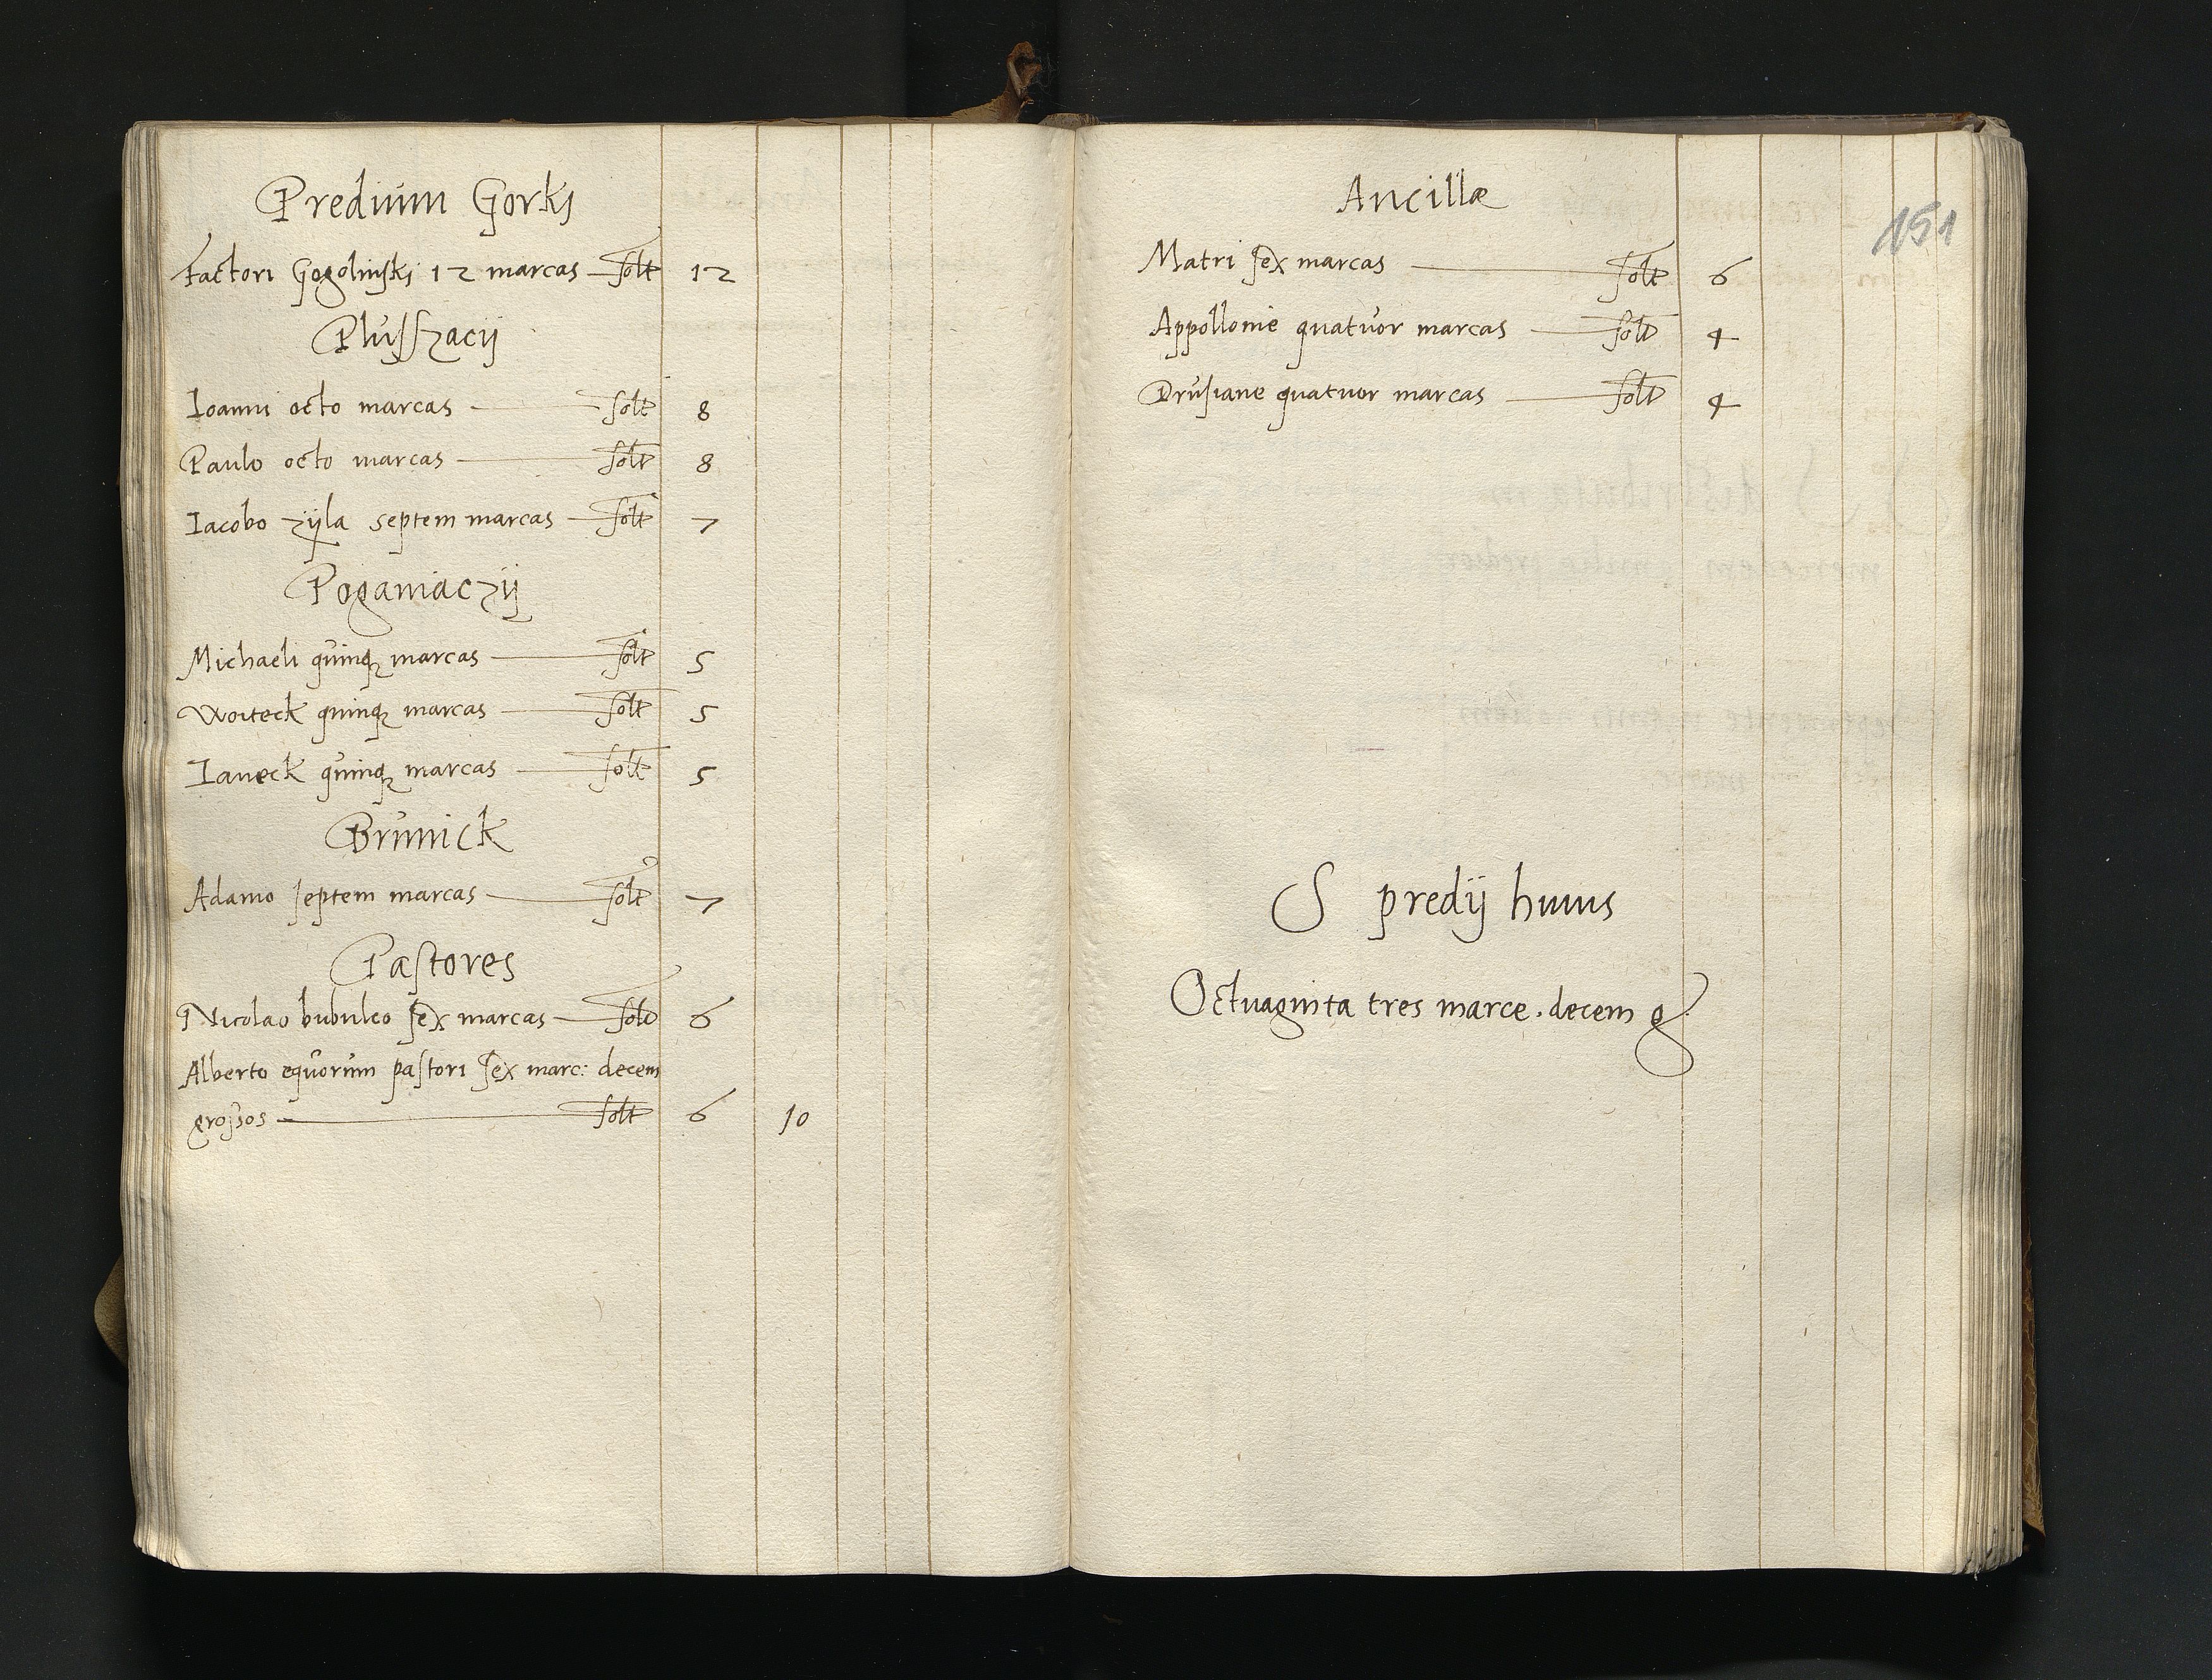 Predium Gorki
Factori Gogolinski 12 marcas solt 12
Plusszacij
Ioanni octo marcas solt 8
Paulo octo marcas solt 8
Iacobo zijla septem marcas solt 7
Poganiaczij
Michaeli quinq marcas solt 5
Woiteck quinq marcas solt 5
Ianeck quinq marcas solt 5
Brunick
Adamo septem marcas solt 7
Pastores
Nicolao bubulco sex marcas solt 6
Alberto equorum pastori sex marc: decem
grossos solt 6 10
151
Ancillæ
Matri sex marcas solt 6
Appollonie quatuor marcas solt 4
Drusiane quatuor marcas solt 4
S predij huius
Octuaginta tres marce. decem g